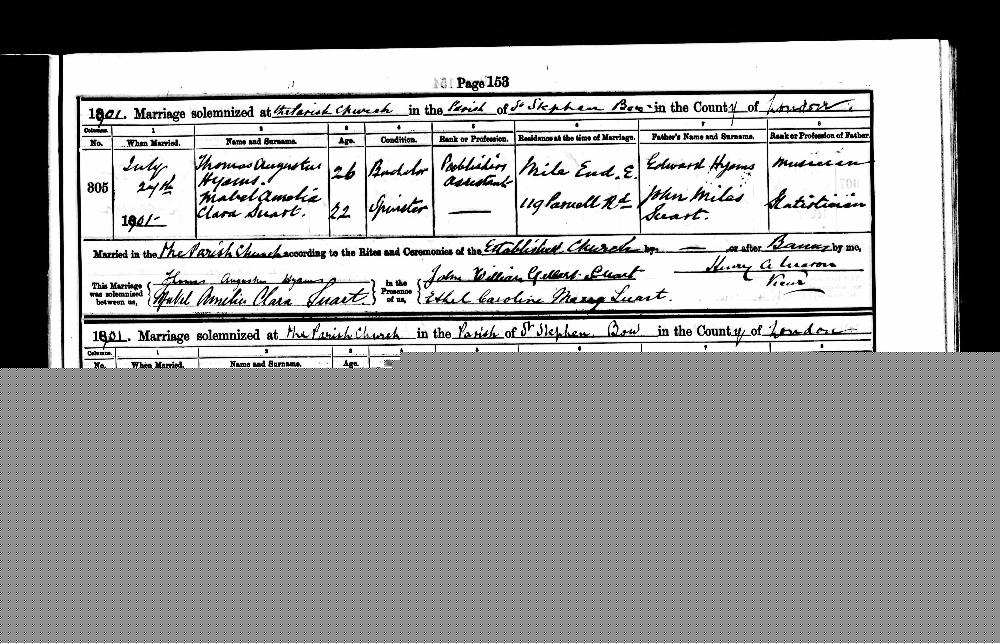 Page 153
1901. Marriage solemnized at the Parish Church in the Parish of St Stephen Bow in the County of London.
Columns. 1 2 3 4 5 6 7 8
No. When Married. Name and Surname. Age. Condition. Rank or Profession. Residence at the time of Marriage. Father's Name and Surname. Rank or Profession of Father.
305 July 27th 1901 Thomas Augustus Hyams. 26 Bachelor Publishers assistant Mile End. E. Edward Hyams Musician
Mabel Amelia Clara Suart. 22 Spinster — 119 Parnell Rd John Miles Suart. Statistician
Married in the Parish Church according to the Rites and Ceremonies of the Established Church by — or after Banns by me,
Henry A Vicar
This Marriage was solemnized between us, Thomas Augustus Hyams Mabel Amelia Clara Suart. In the Presence of us, John William Gilbert Suart Ethel Caroline Suart.
1901. Marriage solemnized at the Parish Church in the Parish of St Stephen, Bow in the County of London
Columns. 1 2 3 4 5 6 7 8
No. When Married. Name and Surname. Age.